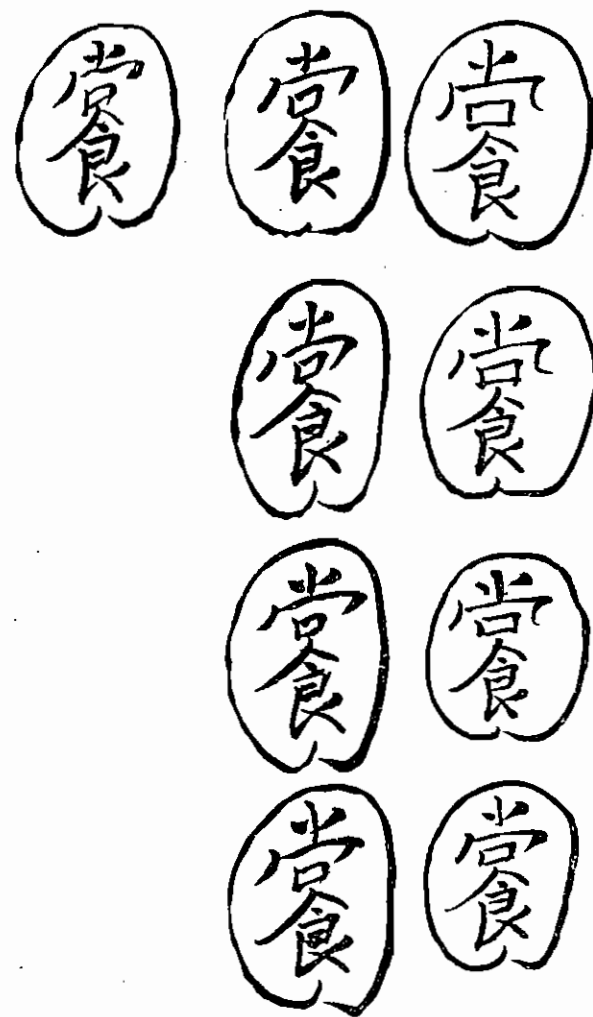 尚食
尚食
尚食
尚食
尚食
尚食
尚食
尚食
尚食